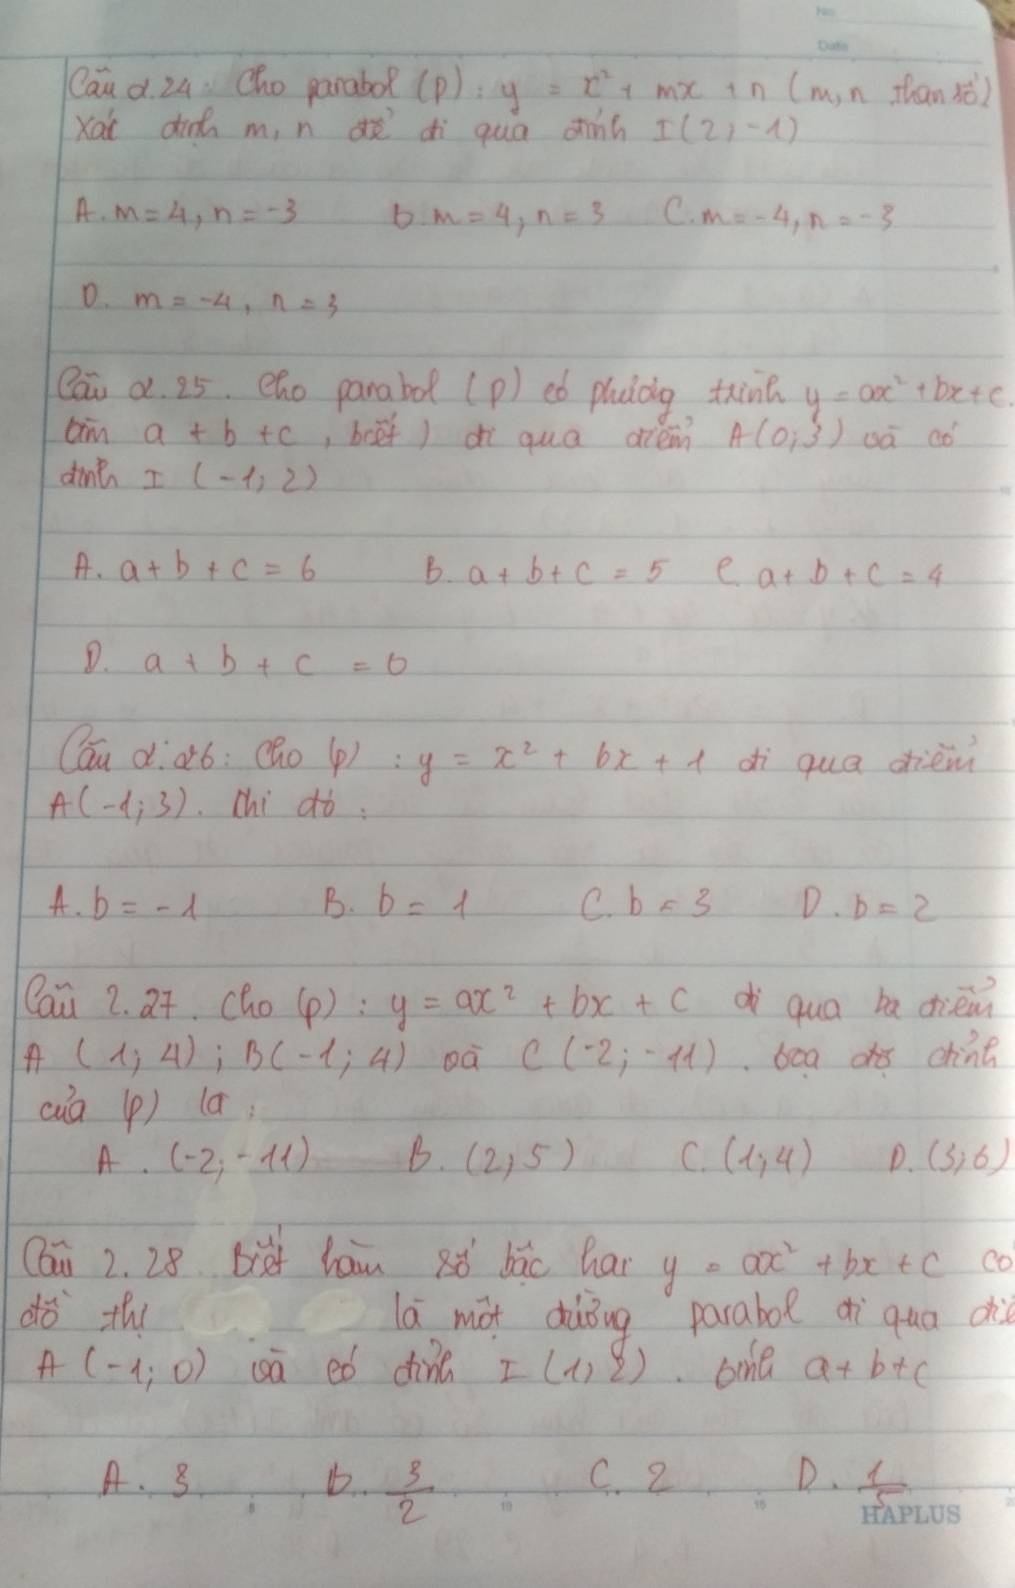 No
Date
Câu 2.24: Cho parabol (P) : y = x² + mx + n (m, n tham số)
Xác định m, n để đi qua đỉnh I(2; -1)
A. m = 4, n = -3 B. m = 4, n = 3 C. m = -4, n = -3
D. m = -4, n = 3
Câu 2.25. Cho parabol (P) có phương trình y = ax² + bx + c.
tìm a + b + c, biết ) đi qua điểm A(0; 3) và có
đỉnh I (-1; 2)
A. a + b + c = 6 B. a + b + c = 5 C. a + b + c = 4
D. a + b + c = 0
Câu 2.26: Cho (P) : y = x² + bx + 1 đi qua điểm
A(-1; 3). Khi đó :
A. b = -1 B. b = 1 C. b = 3 D. b = 2
Câu 2.27. Cho (P) : y = ax² + bx + c đi qua ba điểm
A (1; 4) ; B(-1; 4) và C (-2; -11). toạ độ đỉnh
của (P) là :
A. (-2; -11) B. (2; 5) C. (1; 4) D. (3; 6)
Câu 2.28 Biết hàm số bậc hai y = ax² + bx + c có
đồ thị là một đường parabol đi qua
A (-1; 0) và có đỉnh I (1; 2). tính a + b + c
A. 3 B. 3/2 C. 2 D. 1
HAPLUS